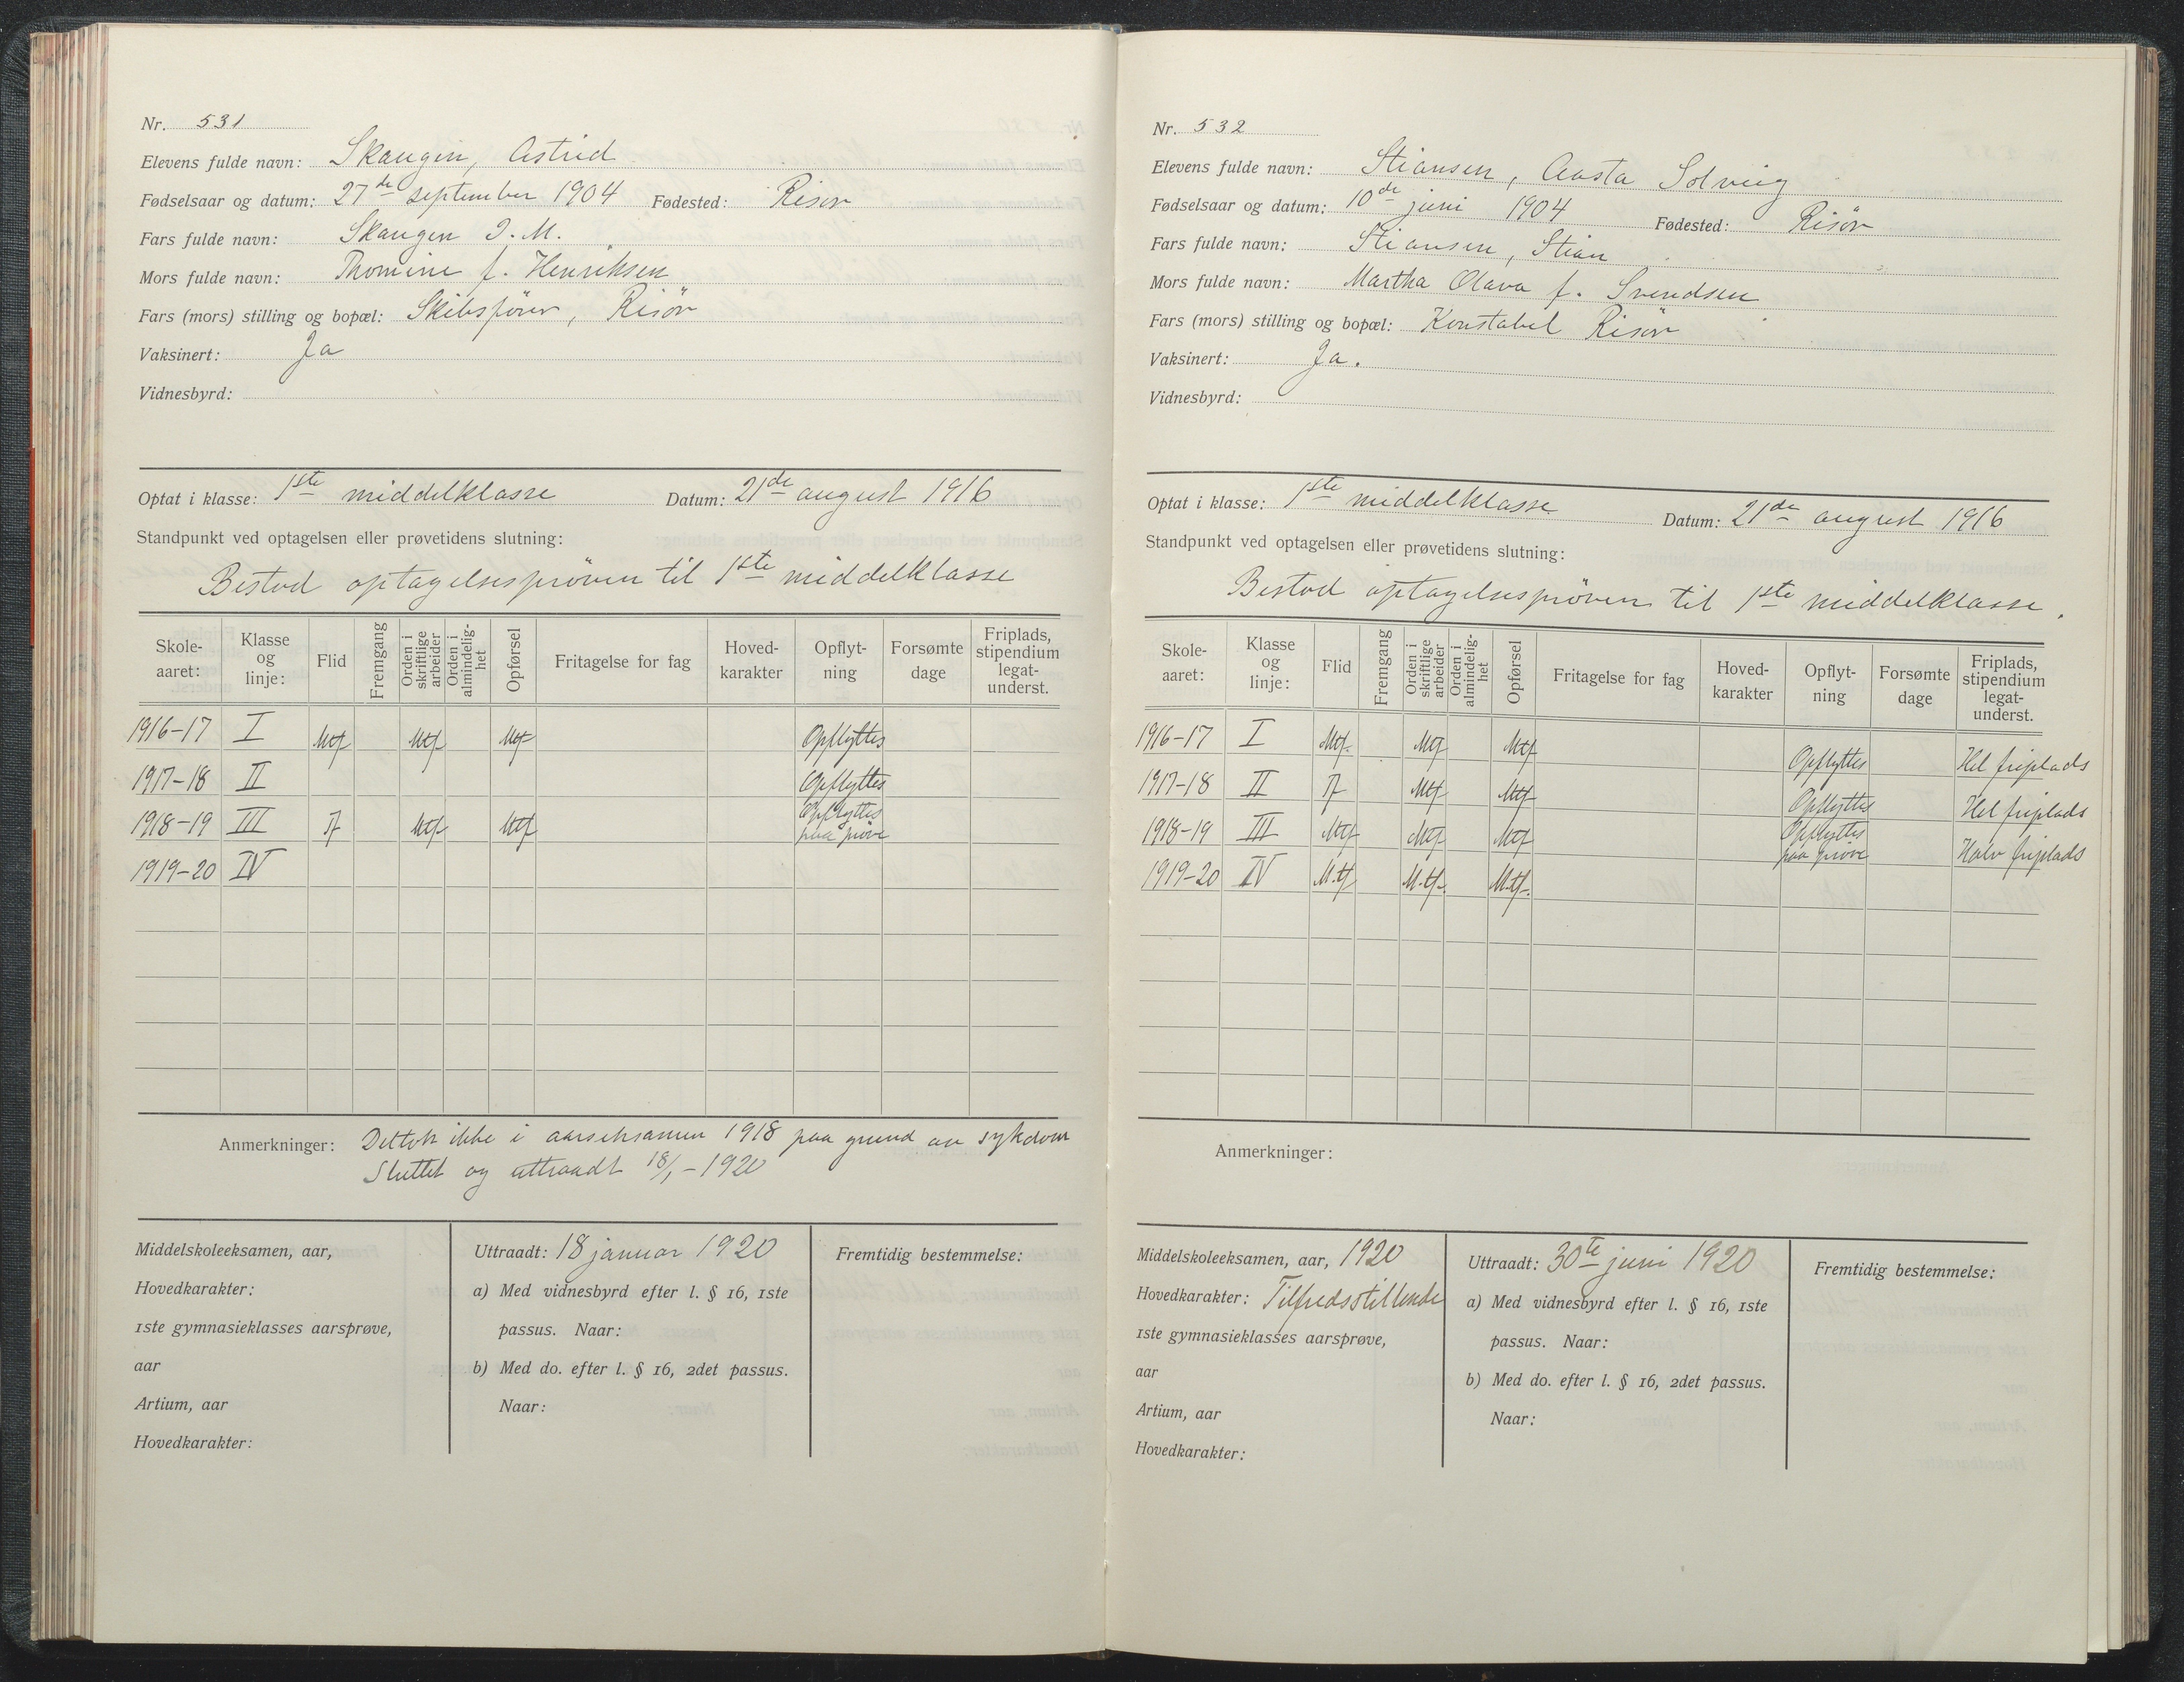 Nr. 531
Elevens fulde navn: Skaugen, Astrid
Fødselsaar og datum: 27de september 1904 Fødested: Risør
Fars fulde navn: Skaugen J. M.
Mors fulde navn: Thomine f. Henriksen
Fars (mors) stilling og bopæl: Skibsfører, Risör
Vaksinert: Ja
Vidnesbyrd:
Optat i klasse: 1ste middelklasse Datum: 21de august 1916
Standpunkt ved optagelsen eller prøvetidens slutning:
Bestod optagelsesprøven til 1ste middelklasse
Skole-aaret: Klasse og linje: Flid Fremgang Orden i skriftlige arbeider Orden i almindelig-het Opførsel Fritagelse for fag Hoved-karakter Opflyt-ning Forsømte dage Friplads, stipendium legat-underst.
1916-17 I Mtf Mtf Mtf Opflyttes
1917-18 II Opflyttes
1918-19 III Tf Mtf Mtf Opflyttes paa prøve
1919-20 IV
Anmerkninger: Deltok ikke i aarseksamen 1918 paa grund av sykdom
Sluttet og uttraadt 18/1-1920
Middelskoleeksamen, aar,
Hovedkarakter:
1ste gymnasieklasses aarsprøve,
aar
Artium, aar
Hovedkarakter:
Uttraadt: 18 januar 1920
a) Med vidnesbyrd efter l. § 16, 1ste
passus. Naar:
b) Med do. efter l. § 16, 2det passus.
Naar:
Fremtidig bestemmelse:
Nr. 532
Elevens fulde navn: Stiansen, Aasta Solveig
Fødselsaar og datum: 10de juni 1904 Fødested: Risör
Fars fulde navn: Stiansen, Stian
Mors fulde navn: Martha Olava f. Svendsen
Fars (mors) stilling og bopæl: Konstabel Risör
Vaksinert: Ja.
Vidnesbyrd:
Optat i klasse: 1ste middelklasse Datum: 21de august 1916
Standpunkt ved optagelsen eller prøvetidens slutning:
Bestod optagelsespröven til 1ste middelklasse.
Skole-aaret: Klasse og linje: Flid Fremgang Orden i skriftlige arbeider Orden i almindelig-het Opførsel Fritagelse for fag Hoved-karakter Opflyt-ning Forsømte dage Friplads, stipendium legat-underst.
1916-17 I Mtf. Mtf Mtf Opflyttes Hel friplads
1917-18 II Tf Mtf Mtf Opflyttes Hel friplads
1918-19 III Mtf Mtf Mtf Opflyttes paa prøve Halv friplads
1919-20 IV M.tf M.tf. M.tf.
Anmerkninger:
Middelskoleeksamen, aar, 1920
Hovedkarakter: Tilfredsstillende
1ste gymnasieklasses aarsprøve,
aar
Artium, aar
Hovedkarakter:
Uttraadt: 30te juni 1920
a) Med vidnesbyrd efter l. § 16, 1ste
passus. Naar:
b) Med do. efter l. § 16, 2det passus.
Naar:
Fremtidig bestemmelse: